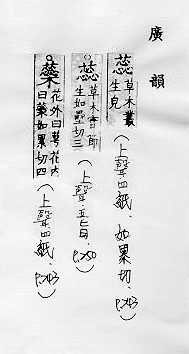 廣韻
蕊 草木叢生皃（上聲四紙．如累切．P.243）
蕊 草木實節生如壘切三（上聲．五旨．P.250）
蘂 花外曰萼花內曰蘂如累切四（上聲四紙．P.243）